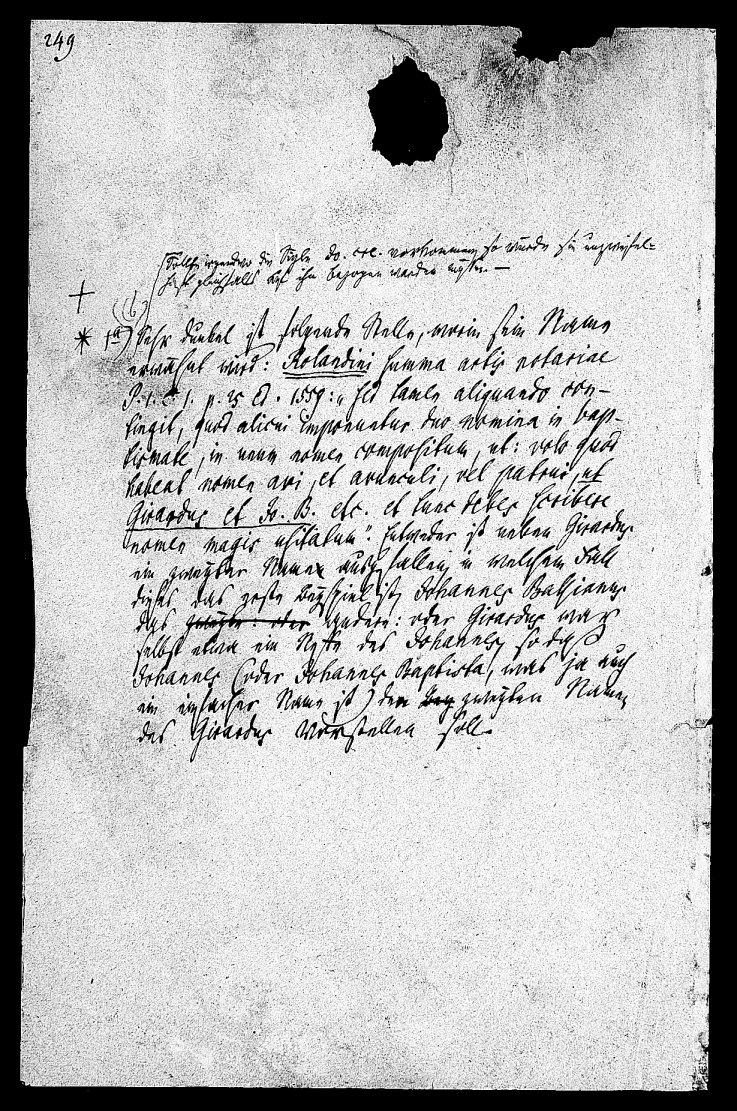 249
Sollte irgendwo die Sigle Jo. cre. vorkommen, so würde sie unzweifel=
haft gleichfalls auf ihn bezogen werden müssen. —
+
(b)
* 1a) Sehr dunkel ist folgende Stelle, worin sein Name
erwähnt wird: Rolandini summa artis notariae
P. 1. C. 1. p. 25 Ed. 1559: „Sed tamen aliquando con-
tingit, quod alicui imponuntur duo nomina in bap-
tismate, in unum nomen compositum, ut: volo quod
habeat nomen avi, et avunculi, vel patrui, ut
Girardus et Jo. B. etc. et tunc debes scribere
nomen magis usitatum“. Entweder ist neben Girardus
ein zweyter Name ausgefallen, in welchem Fall
dieses das erste Beyspiel ist, Johannes Bassianus
das zweyte: oder andere: oder Girardus war
selbst etwa ein Neffe des Johannes, so daß
Johannes (oder Johannes Baptista, was ja auch
ein einfacher Name ist) den zweyten Namen
des Girardus vorstellen soll.